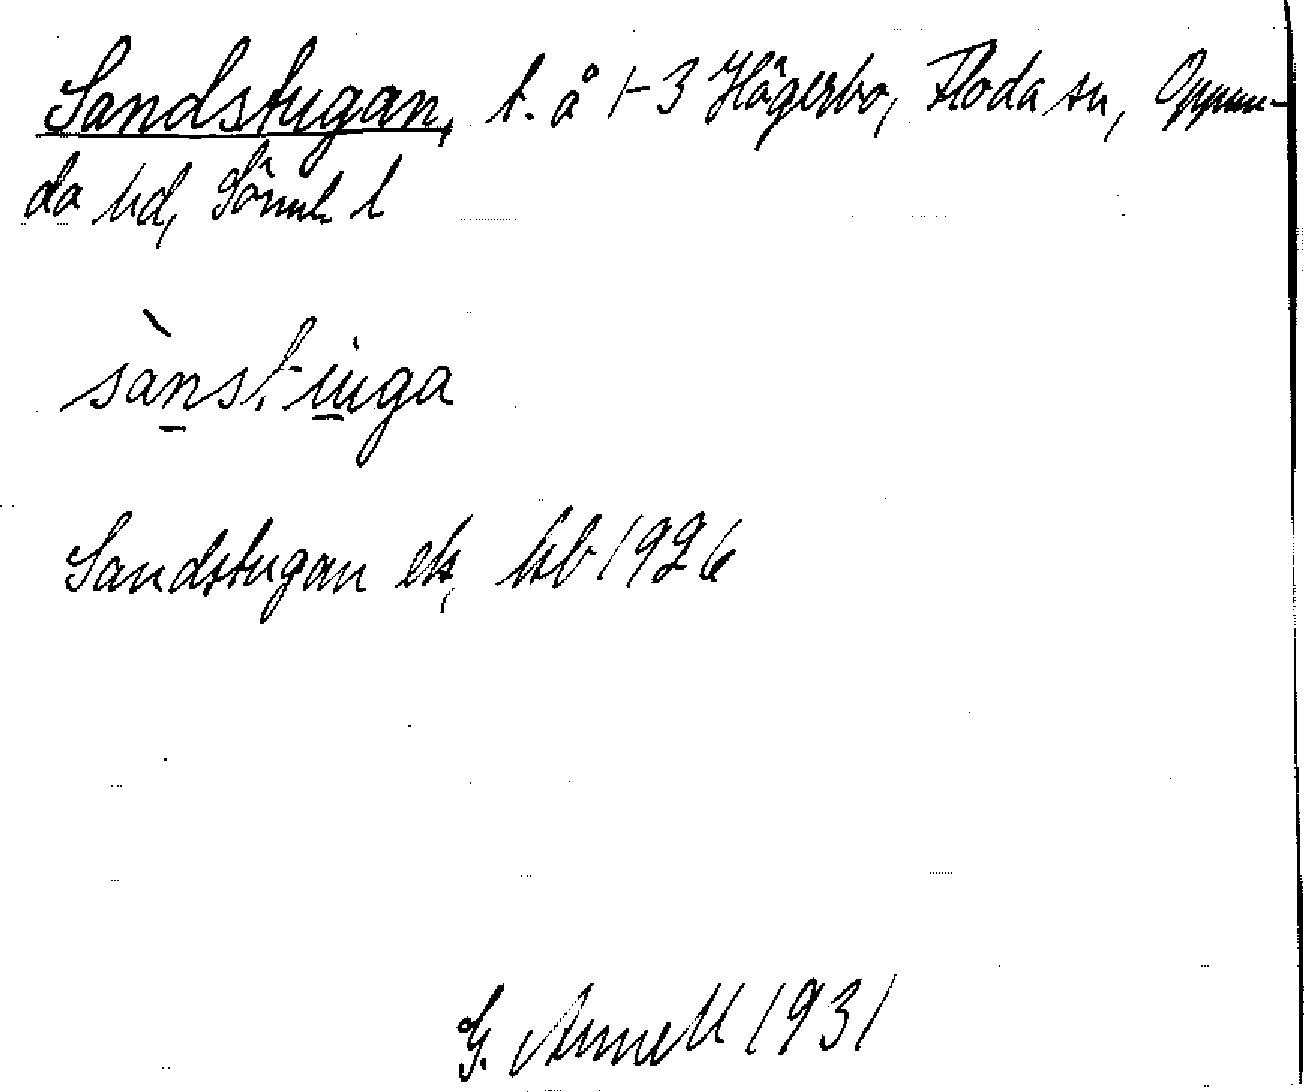 Sandstugan, t. å 1-3 Högerbo, Floda sn, Oppun-
da hd, Söml. l
sànstuga
Sandstugan ek, hb 1926
G. Arnell 1931